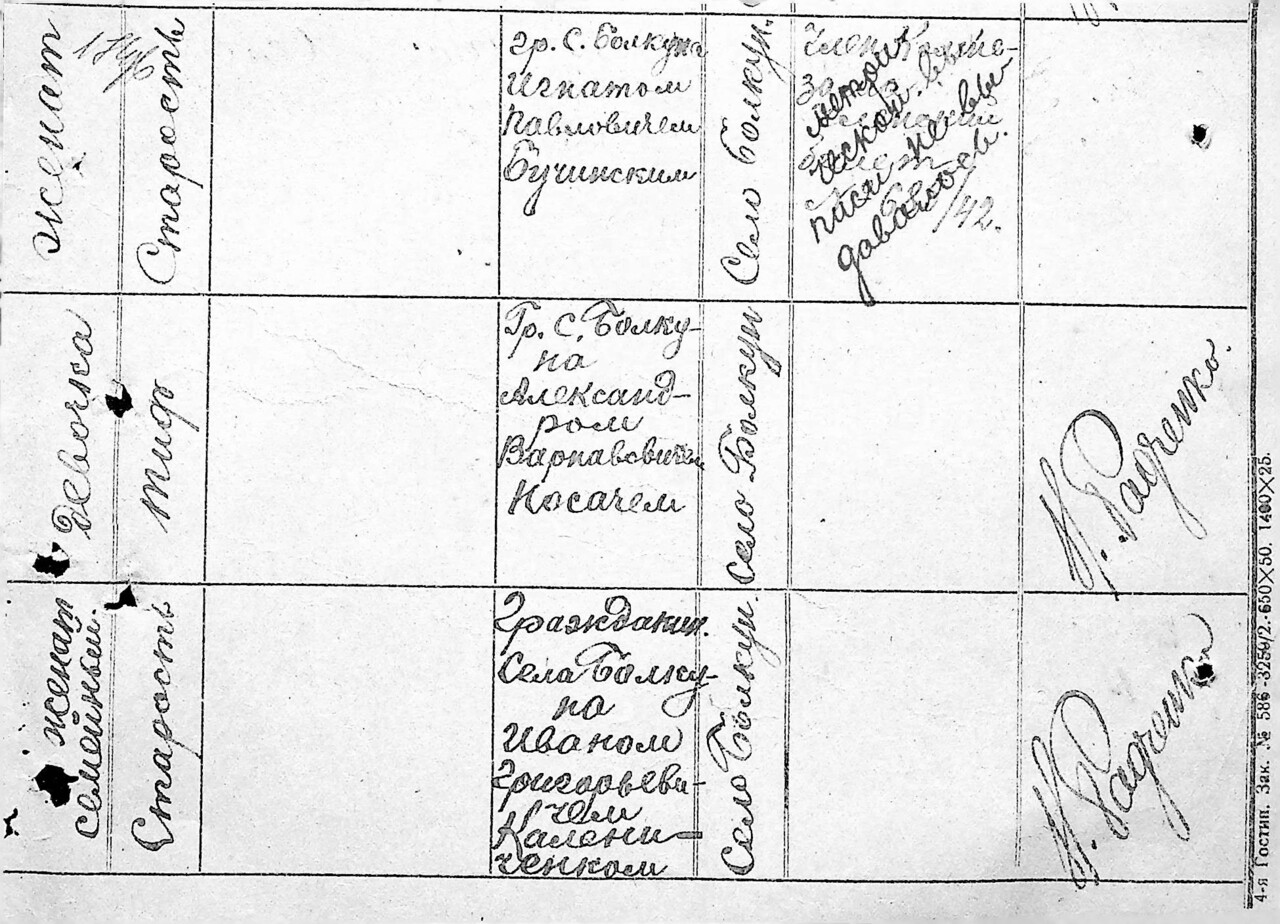 женат
1846
Старость
гр. С. Болкуна
Игнатом
Павловичем
Бучинским
Село Болкун.
Член
метри
ческой
писи не вы
давалось.
/42.
Девочка
тиф
Гр. С. Болку-
на
Александ-
ром
Варнавовичем
Косачем
Село Болкун
Н. Радченко.
женат
семейный.
Старость
Гражданин.
Села Болку-
на
Иваном
Григорьеви-
чем
Калени-
ченком
Село Болкун.
Н. Радченко
4-я Гостип. Зак. № 586-3259/2. 650×50. 1400×25.